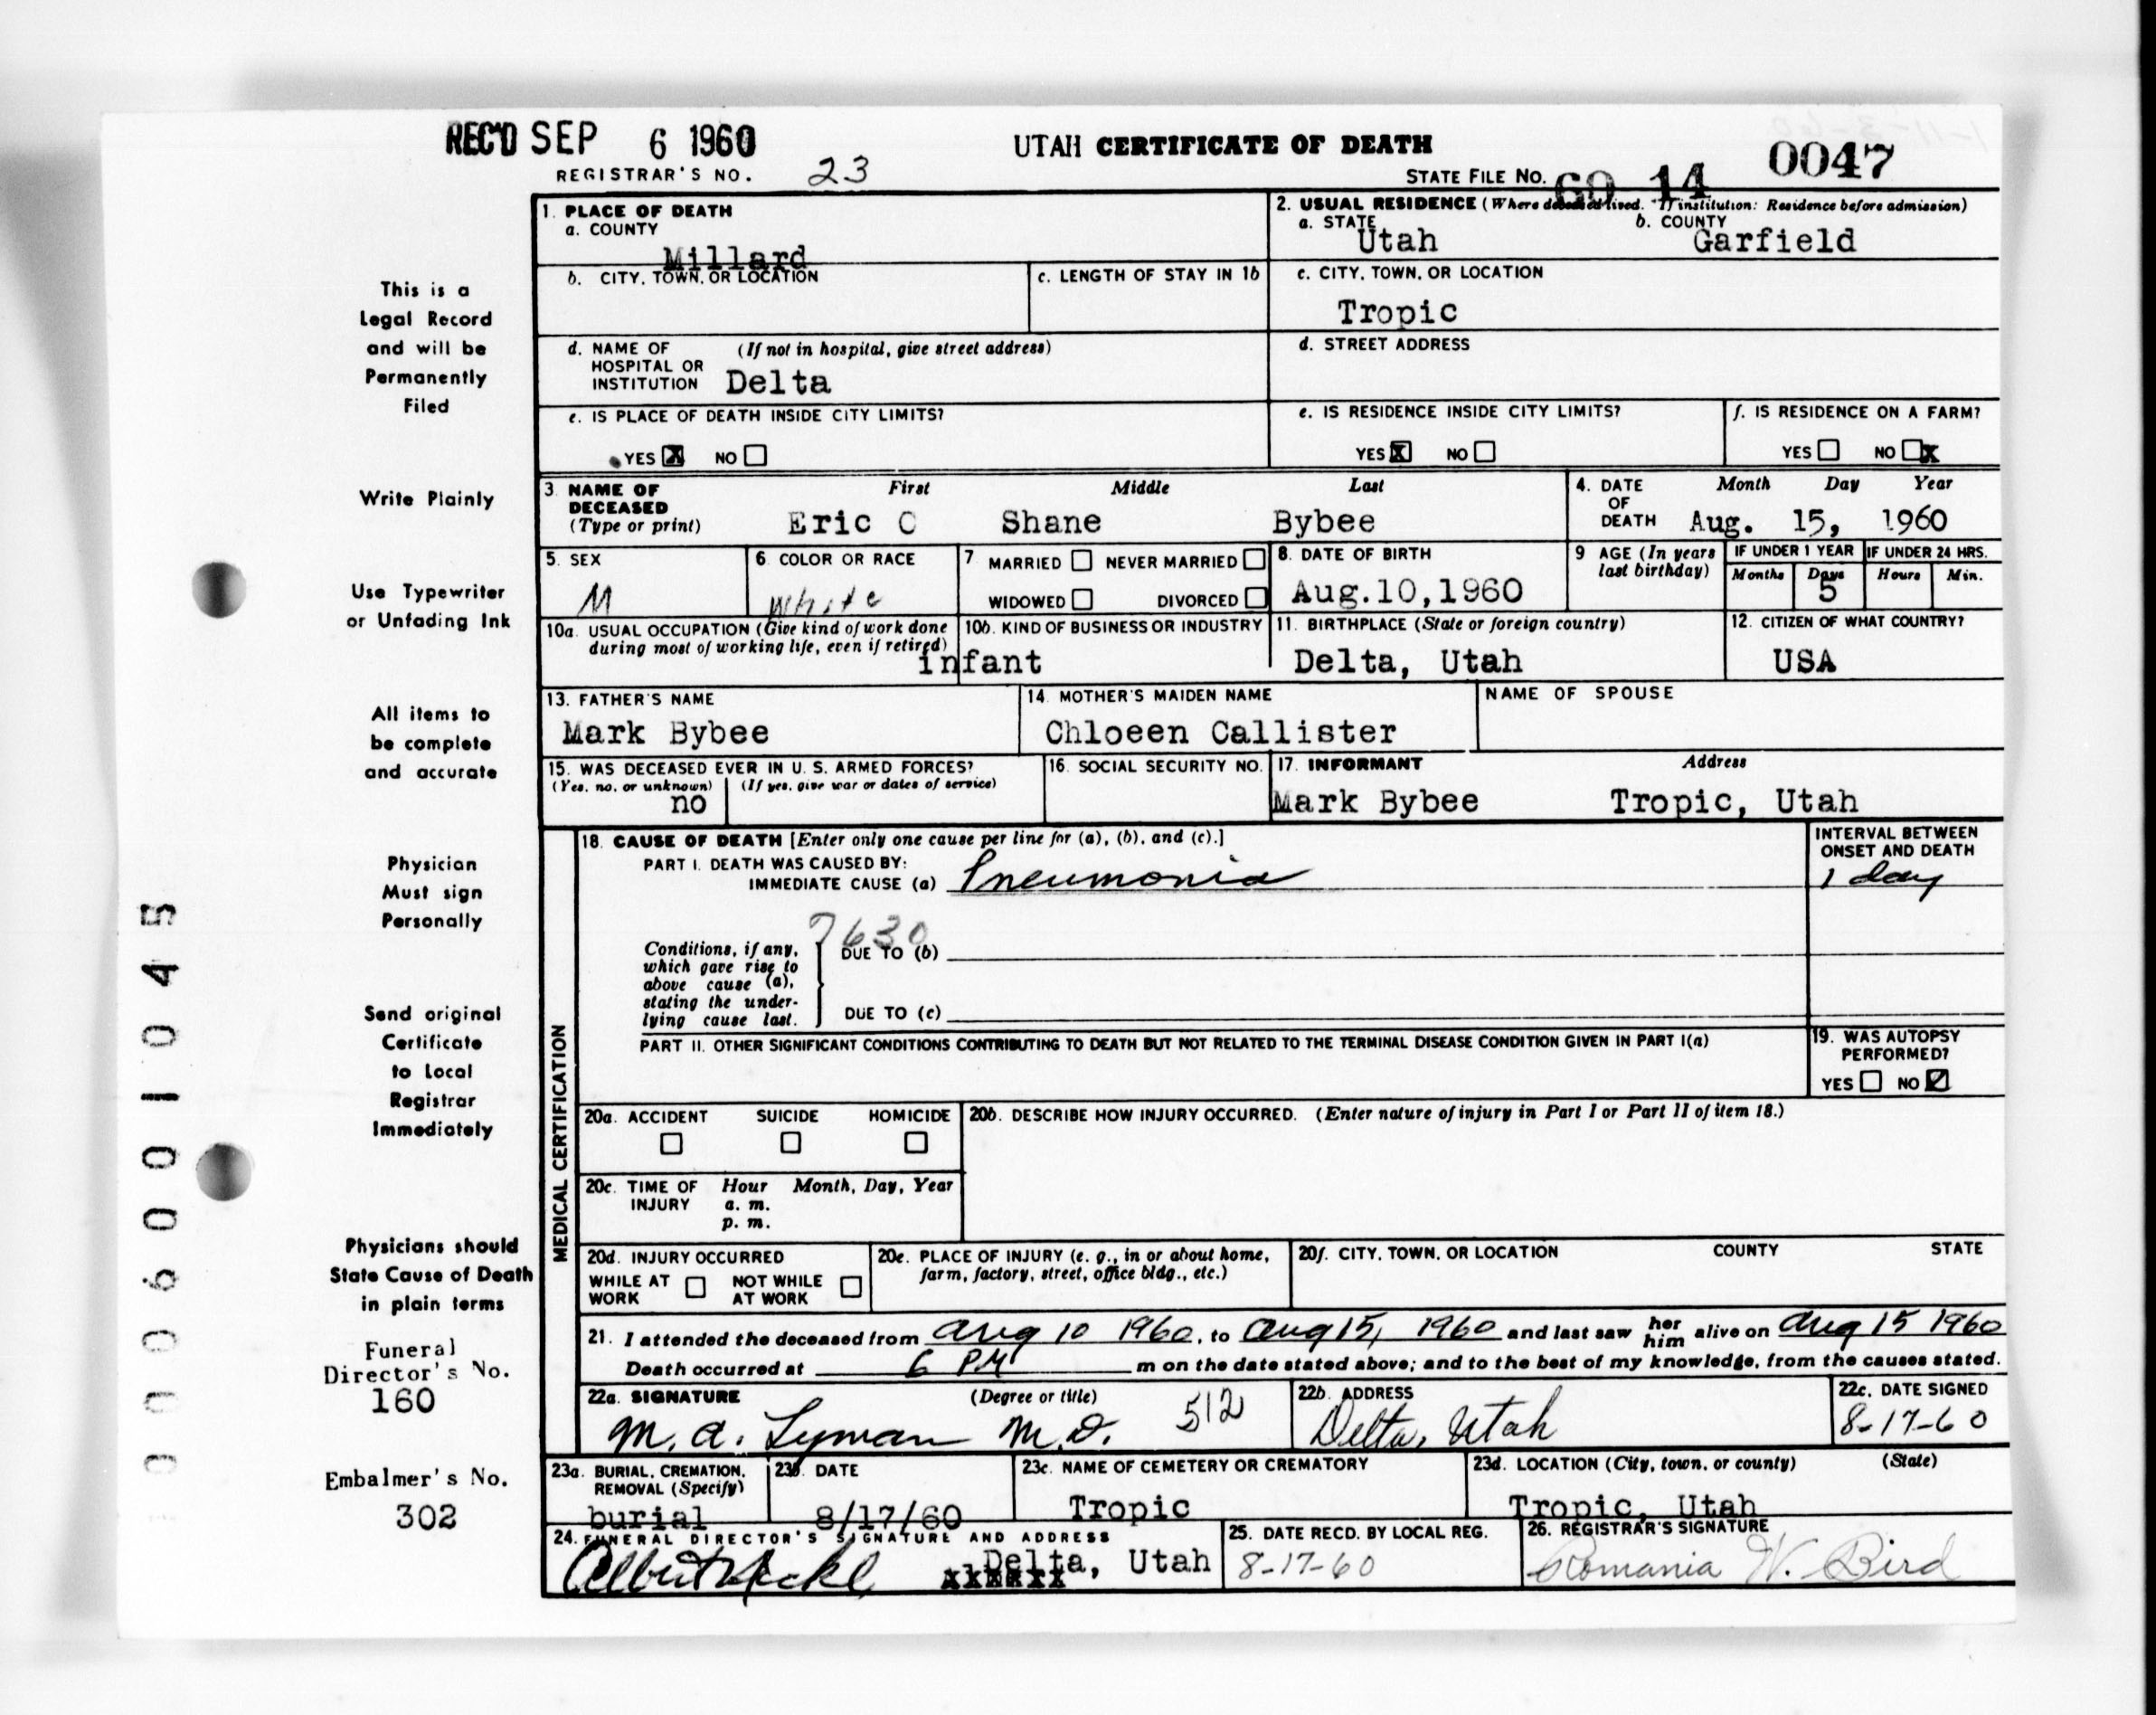 REC'D SEP 6 1960
UTAH CERTIFICATE OF DEATH
REGISTRAR'S NO. 23
STATE FILE No. 60 14 0047
1. PLACE OF DEATH
a. COUNTY
Millard
2. USUAL RESIDENCE (Where deceased lived. If institution: Residence before admission)
a. STATE Utah b. COUNTY Garfield
b. CITY, TOWN, OR LOCATION
c. LENGTH OF STAY IN 1b
c. CITY, TOWN, OR LOCATION
Tropic
d. NAME OF HOSPITAL OR INSTITUTION (If not in hospital, give street address)
Delta
d. STREET ADDRESS
e. IS PLACE OF DEATH INSIDE CITY LIMITS?
YES X NO
e. IS RESIDENCE INSIDE CITY LIMITS?
YES X NO
f. IS RESIDENCE ON A FARM?
YES NO X
3. NAME OF DECEASED (Type or print)
First Middle Last
Eric C Shane Bybee
4. DATE OF DEATH Month Day Year
Aug. 15, 1960
5. SEX
M
6. COLOR OR RACE
White
7 MARRIED NEVER MARRIED
WIDOWED DIVORCED
8. DATE OF BIRTH
Aug.10,1960
9 AGE (In years last birthday)
IF UNDER 1 YEAR IF UNDER 24 HRS.
Months Days Hours Min.
5
10a. USUAL OCCUPATION (Give kind of work done during most of working life, even if retired)
10b. KIND OF BUSINESS OR INDUSTRY
infant
11. BIRTHPLACE (State or foreign country)
Delta, Utah
12. CITIZEN OF WHAT COUNTRY?
USA
13. FATHER'S NAME
Mark Bybee
14. MOTHER'S MAIDEN NAME
Chloeen Callister
NAME OF SPOUSE
15. WAS DECEASED EVER IN U. S. ARMED FORCES?
(Yes, no, or unknown) (If yes, give war or dates of service)
no
16. SOCIAL SECURITY NO.
17. INFORMANT Address
Mark Bybee Tropic, Utah
MEDICAL CERTIFICATION
18. CAUSE OF DEATH [Enter only one cause per line for (a), (b), and (c).]
PART I. DEATH WAS CAUSED BY:
IMMEDIATE CAUSE (a) Pneumonia
INTERVAL BETWEEN ONSET AND DEATH
1 day
7630
Conditions, if any, which gave rise to above cause (a), stating the underlying cause last.
DUE TO (b)
DUE TO (c)
PART II. OTHER SIGNIFICANT CONDITIONS CONTRIBUTING TO DEATH BUT NOT RELATED TO THE TERMINAL DISEASE CONDITION GIVEN IN PART I(a)
19. WAS AUTOPSY PERFORMED?
YES NO ✓
20a. ACCIDENT SUICIDE HOMICIDE
20b. DESCRIBE HOW INJURY OCCURRED. (Enter nature of injury in Part I or Part II of item 18.)
20c. TIME OF INJURY Hour Month, Day, Year
a. m.
p. m.
20d. INJURY OCCURRED
WHILE AT WORK NOT WHILE AT WORK
20e. PLACE OF INJURY (e. g., in or about home, farm, factory, street, office bldg., etc.)
20f. CITY, TOWN, OR LOCATION COUNTY STATE
21. I attended the deceased from Aug 10 1960, to Aug 15, 1960 and last saw her him alive on Aug 15 1960
Death occurred at 6 PM m on the date stated above; and to the best of my knowledge, from the causes stated.
22a. SIGNATURE (Degree or title)
M. A. Lyman M.D. 512
22b. ADDRESS
Delta, Utah
22c. DATE SIGNED
8-17-60
23a. BURIAL, CREMATION, REMOVAL (Specify)
burial
23b. DATE
8/17/60
23c. NAME OF CEMETERY OR CREMATORY
Tropic
23d. LOCATION (City, town, or county) (State)
Tropic, Utah
24. FUNERAL DIRECTOR'S SIGNATURE AND ADDRESS
Delta, Utah
25. DATE RECD. BY LOCAL REG.
8-17-60
26. REGISTRAR'S SIGNATURE
Romania W. Bird
This is a
Legal Record
and will be
Permanently
Filed
Write Plainly
Use Typewriter
or Unfading Ink
All items to
be complete
and accurate
Physician
Must sign
Personally
Send original
Certificate
to Local
Registrar
Immediately
Physicians should
State Cause of Death
in plain terms
Funeral
Director's No.
160
Embalmer's No.
302
0006001045